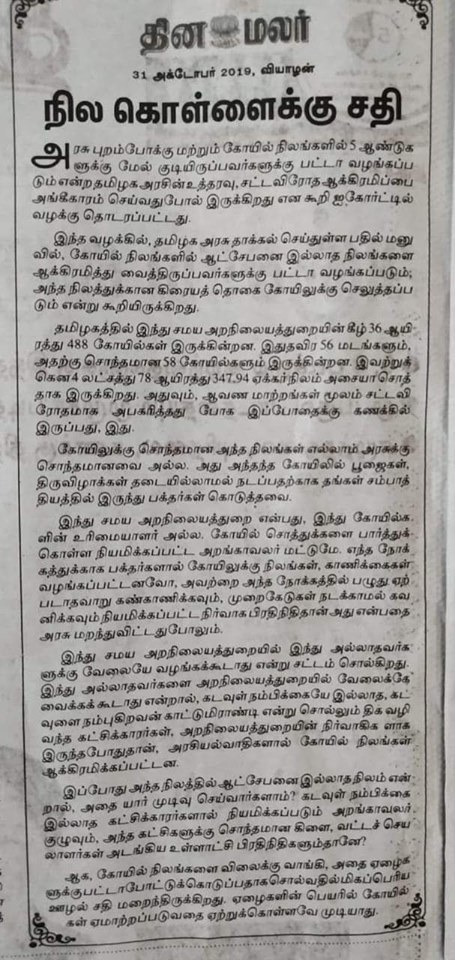 தின மலர்
31 அக்டோபர் 2019, வியாழன்
நில கொள்ளைக்கு சதி
அரசு புறம்போக்கு மற்றும் கோயில் நிலங்களில் 5 ஆண்டுக
ளுக்கு மேல் குடியிருப்பவர்களுக்கு பட்டா வழங்கப்ப
டும் என்ற தமிழக அரசின் உத்தரவு, சட்டவிரோத ஆக்கிரமிப்பை
அங்கீகாரம் செய்வதுபோல் இருக்கிறது என கூறி ஐகோர்ட்டில்
வழக்கு தொடரப்பட்டது.
இந்த வழக்கில், தமிழக அரசு தாக்கல் செய்துள்ள பதில் மனு
வில், கோயில் நிலங்களில் ஆட்சேபனை இல்லாத நிலங்களை
ஆக்கிரமித்து வைத்திருப்பவர்களுக்கு பட்டா வழங்கப்படும்;
அந்த நிலத்துக்கான கிரையத் தொகை கோயிலுக்கு செலுத்தப்ப
டும் என்று கூறியிருக்கிறது.
தமிழகத்தில் இந்து சமய அறநிலையத்துறையின் கீழ் 36 ஆயி
ரத்து 488 கோயில்கள் இருக்கின்றன. இதுதவிர 56 மடங்களும்,
அதற்கு சொந்தமான 58 கோயில்களும் இருக்கின்றன. இவற்றுக்
கென 4 லட்சத்து 78 ஆயிரத்து 347.94 ஏக்கர் நிலம் அசையாசொத்
தாக இருக்கிறது. அதுவும், ஆவண மாற்றங்கள் மூலம் சட்டவி
ரோதமாக அபகரித்தது போக இப்போதைக்கு கணக்கில்
இருப்பது, இது.
கோயிலுக்கு சொந்தமான அந்த நிலங்கள் எல்லாம் அரசுக்கு
சொந்தமானவை அல்ல. அது அந்தந்த கோயிலில் பூஜைகள்,
திருவிழாக்கள் தடையில்லாமல் நடப்பதற்காக தங்கள் சம்பாத்
தியத்தில் இருந்து பக்தர்கள் கொடுத்தவை.
இந்து சமய அறநிலையத்துறை என்பது, இந்து கோயில்க
ளின் உரிமையாளர் அல்ல. கோயில் சொத்துக்களை பார்த்துக்
கொள்ள நியமிக்கப்பட்ட அறங்காவலர் மட்டுமே. எந்த நோக்
கத்துக்காக பக்தர்களால் கோயிலுக்கு நிலங்கள், காணிக்கைகள்
வழங்கப்பட்டனவோ, அவற்றை அந்த நோக்கத்தில் பழுது ஏற்
படாதவாறு கண்காணிக்கவும், முறைகேடுகள் நடக்காமல் கவ
னிக்கவும் நியமிக்கப்பட்ட நிர்வாக பிரதிநிதிதான் அது என்பதை
அரசு மறந்துவிட்டதுபோலும்.
இந்து சமய அறநிலையத்துறையில் இந்து அல்லாதவர்க
ளுக்கு வேலையே வழங்கக்கூடாது என்று சட்டம் சொல்கிறது.
இந்து அல்லாதவர்களை அறநிலையத்துறையில் வேலைக்கே
வைக்கக் கூடாது என்றால், கடவுள் நம்பிக்கையே இல்லாத, கட
வுளை நம்புகிறவன் காட்டுமிராண்டி என்று சொல்லும் திக வழி
வந்த கட்சிக்காரர்கள், அறநிலையத்துறையின் நிர்வாகிக ளாக
இருந்தபோதுதான், அரசியல்வாதிகளால் கோயில் நிலங்கள்
ஆக்கிரமிக்கப்பட்டன.
இப்போது அந்த நிலத்தில் ஆட்சேபனை இல்லாத நிலம் என்
றால், அதை யார் முடிவு செய்வார்களாம்? கடவுள் நம்பிக்கை
இல்லாத கட்சிக்காரர்களால் நியமிக்கப்படும் அறங்காவலர்
குழுவும், அந்த கட்சிகளுக்கு சொந்தமான கிளை, வட்டச் செய
லாளர்கள் அடங்கிய உள்ளாட்சி பிரதிநிதிகளும்தானே?
ஆக, கோயில் நிலங்களை விலைக்கு வாங்கி, அதை ஏழைக
ளுக்கு பட்டா போட்டுக்கொடுப்பதாக சொல்வதில் மிகப்பெரிய
ஊழல் சதி மறைந்திருக்கிறது. ஏழைகளின் பெயரில் கோயில்
கள் ஏமாற்றப்படுவதை ஏற்றுக்கொள்ளவே முடியாது.